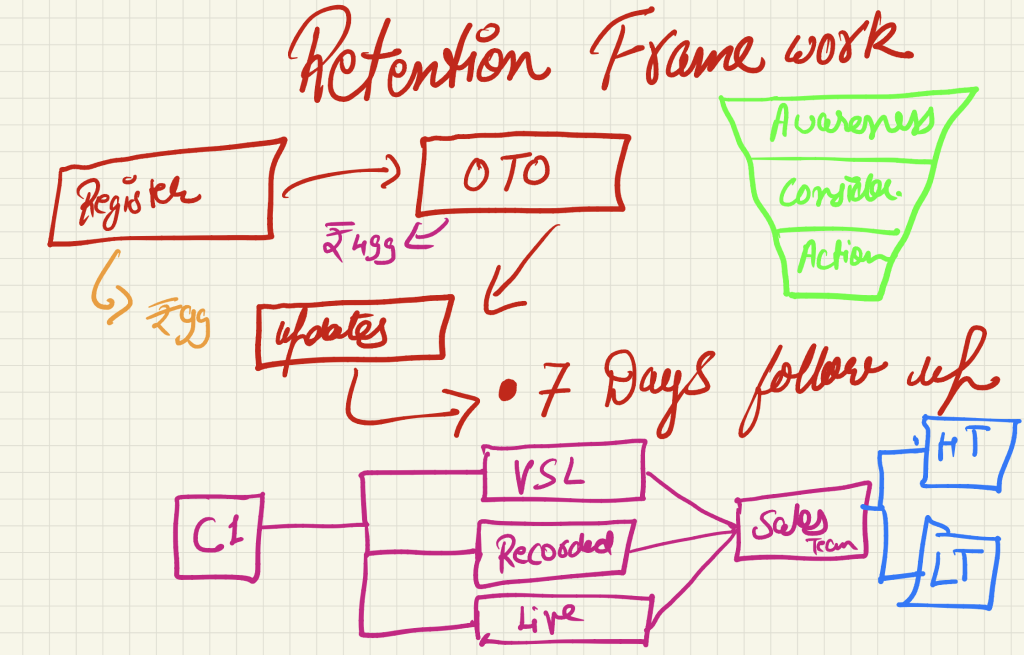 Retention Frame work
Awareness
Consider.
Action
Register
OTO
₹499
₹99
updates
• 7 Days follow up
C1
VSL
Recorded
Live
Sales
Team
HT
LT